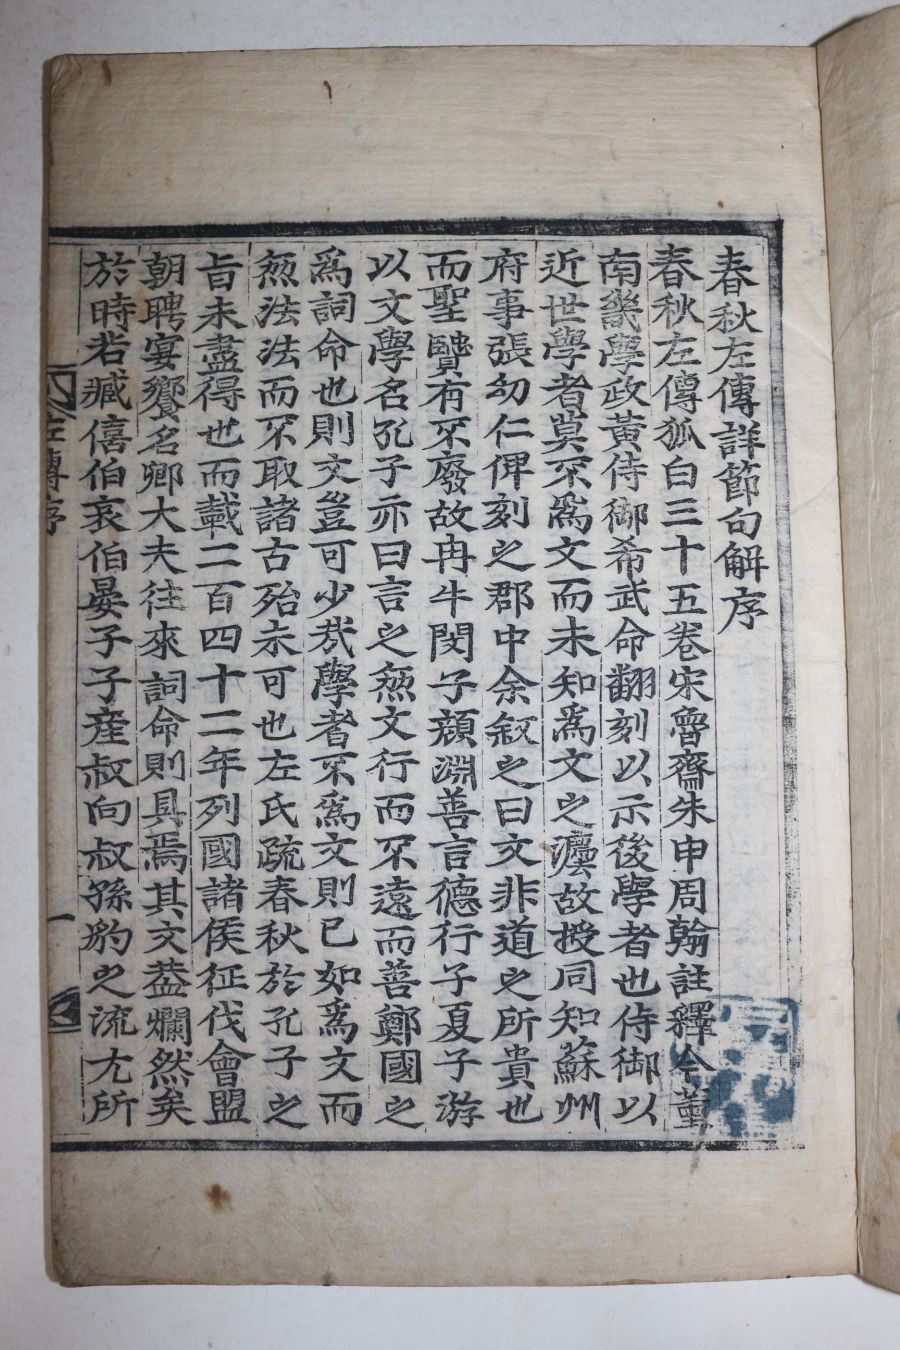 春秋左傳詳節句解序
春秋左傳狐白三十五卷宋魯齋朱申周翰註釋今董
南畿學政黃侍御希武命翻刻以示後學者也侍御以
近世學者莫不爲文而未知爲文之灋故授同知蘇州
府事張幼仁俾刻之郡中余叙之曰文非道之所貴也
而聖贒有不廢故冉牛閔子顔淵善言德行子夏子游
以文學名孔子亦曰言之無文行而不遠而善鄭國之
爲詞命也則文豈可少㢤學者不爲文則已如爲文而
無法法而不取諸古殆未可也左氏疏春秋於孔子之
旨未盡得也而載二百四十二年列國諸侯征伐會盟
朝聘宴饗名卿大夫往來詞命則具焉其文葢爛然矣
於時若臧僖伯哀伯晏子子產叔向叔孫豹之流尤所
左傳序
一